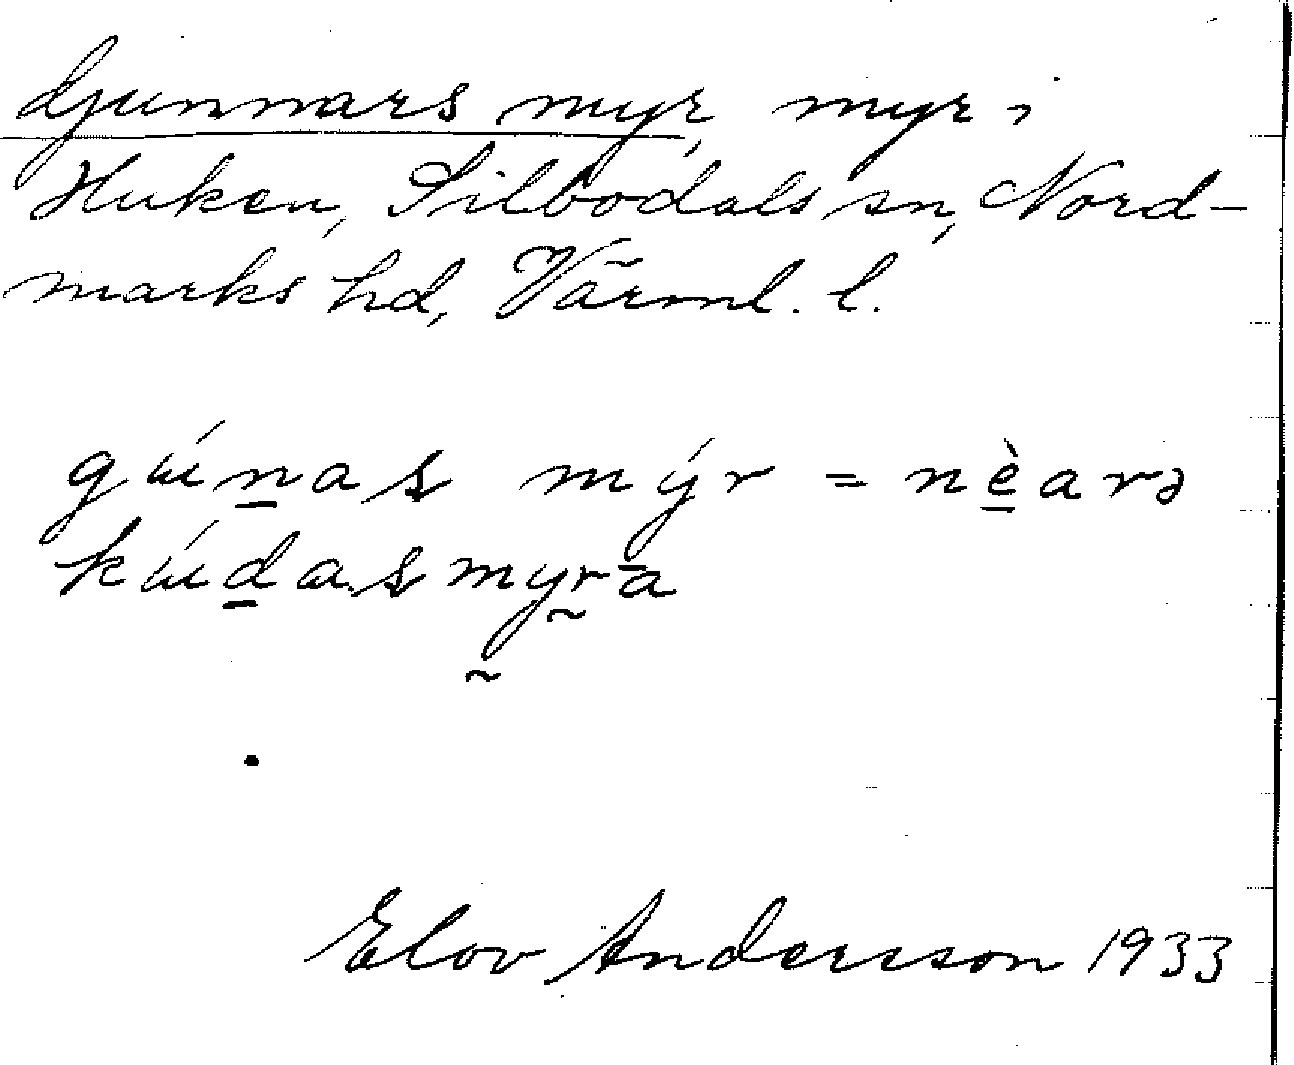 Gunnars myr, myr i
Huken, Silbodals sn, Nord-
marks hd, Värml. l.
gɯ́nas mýr = nèarə
kɯ́dasmyra
Elov Andersson 1933